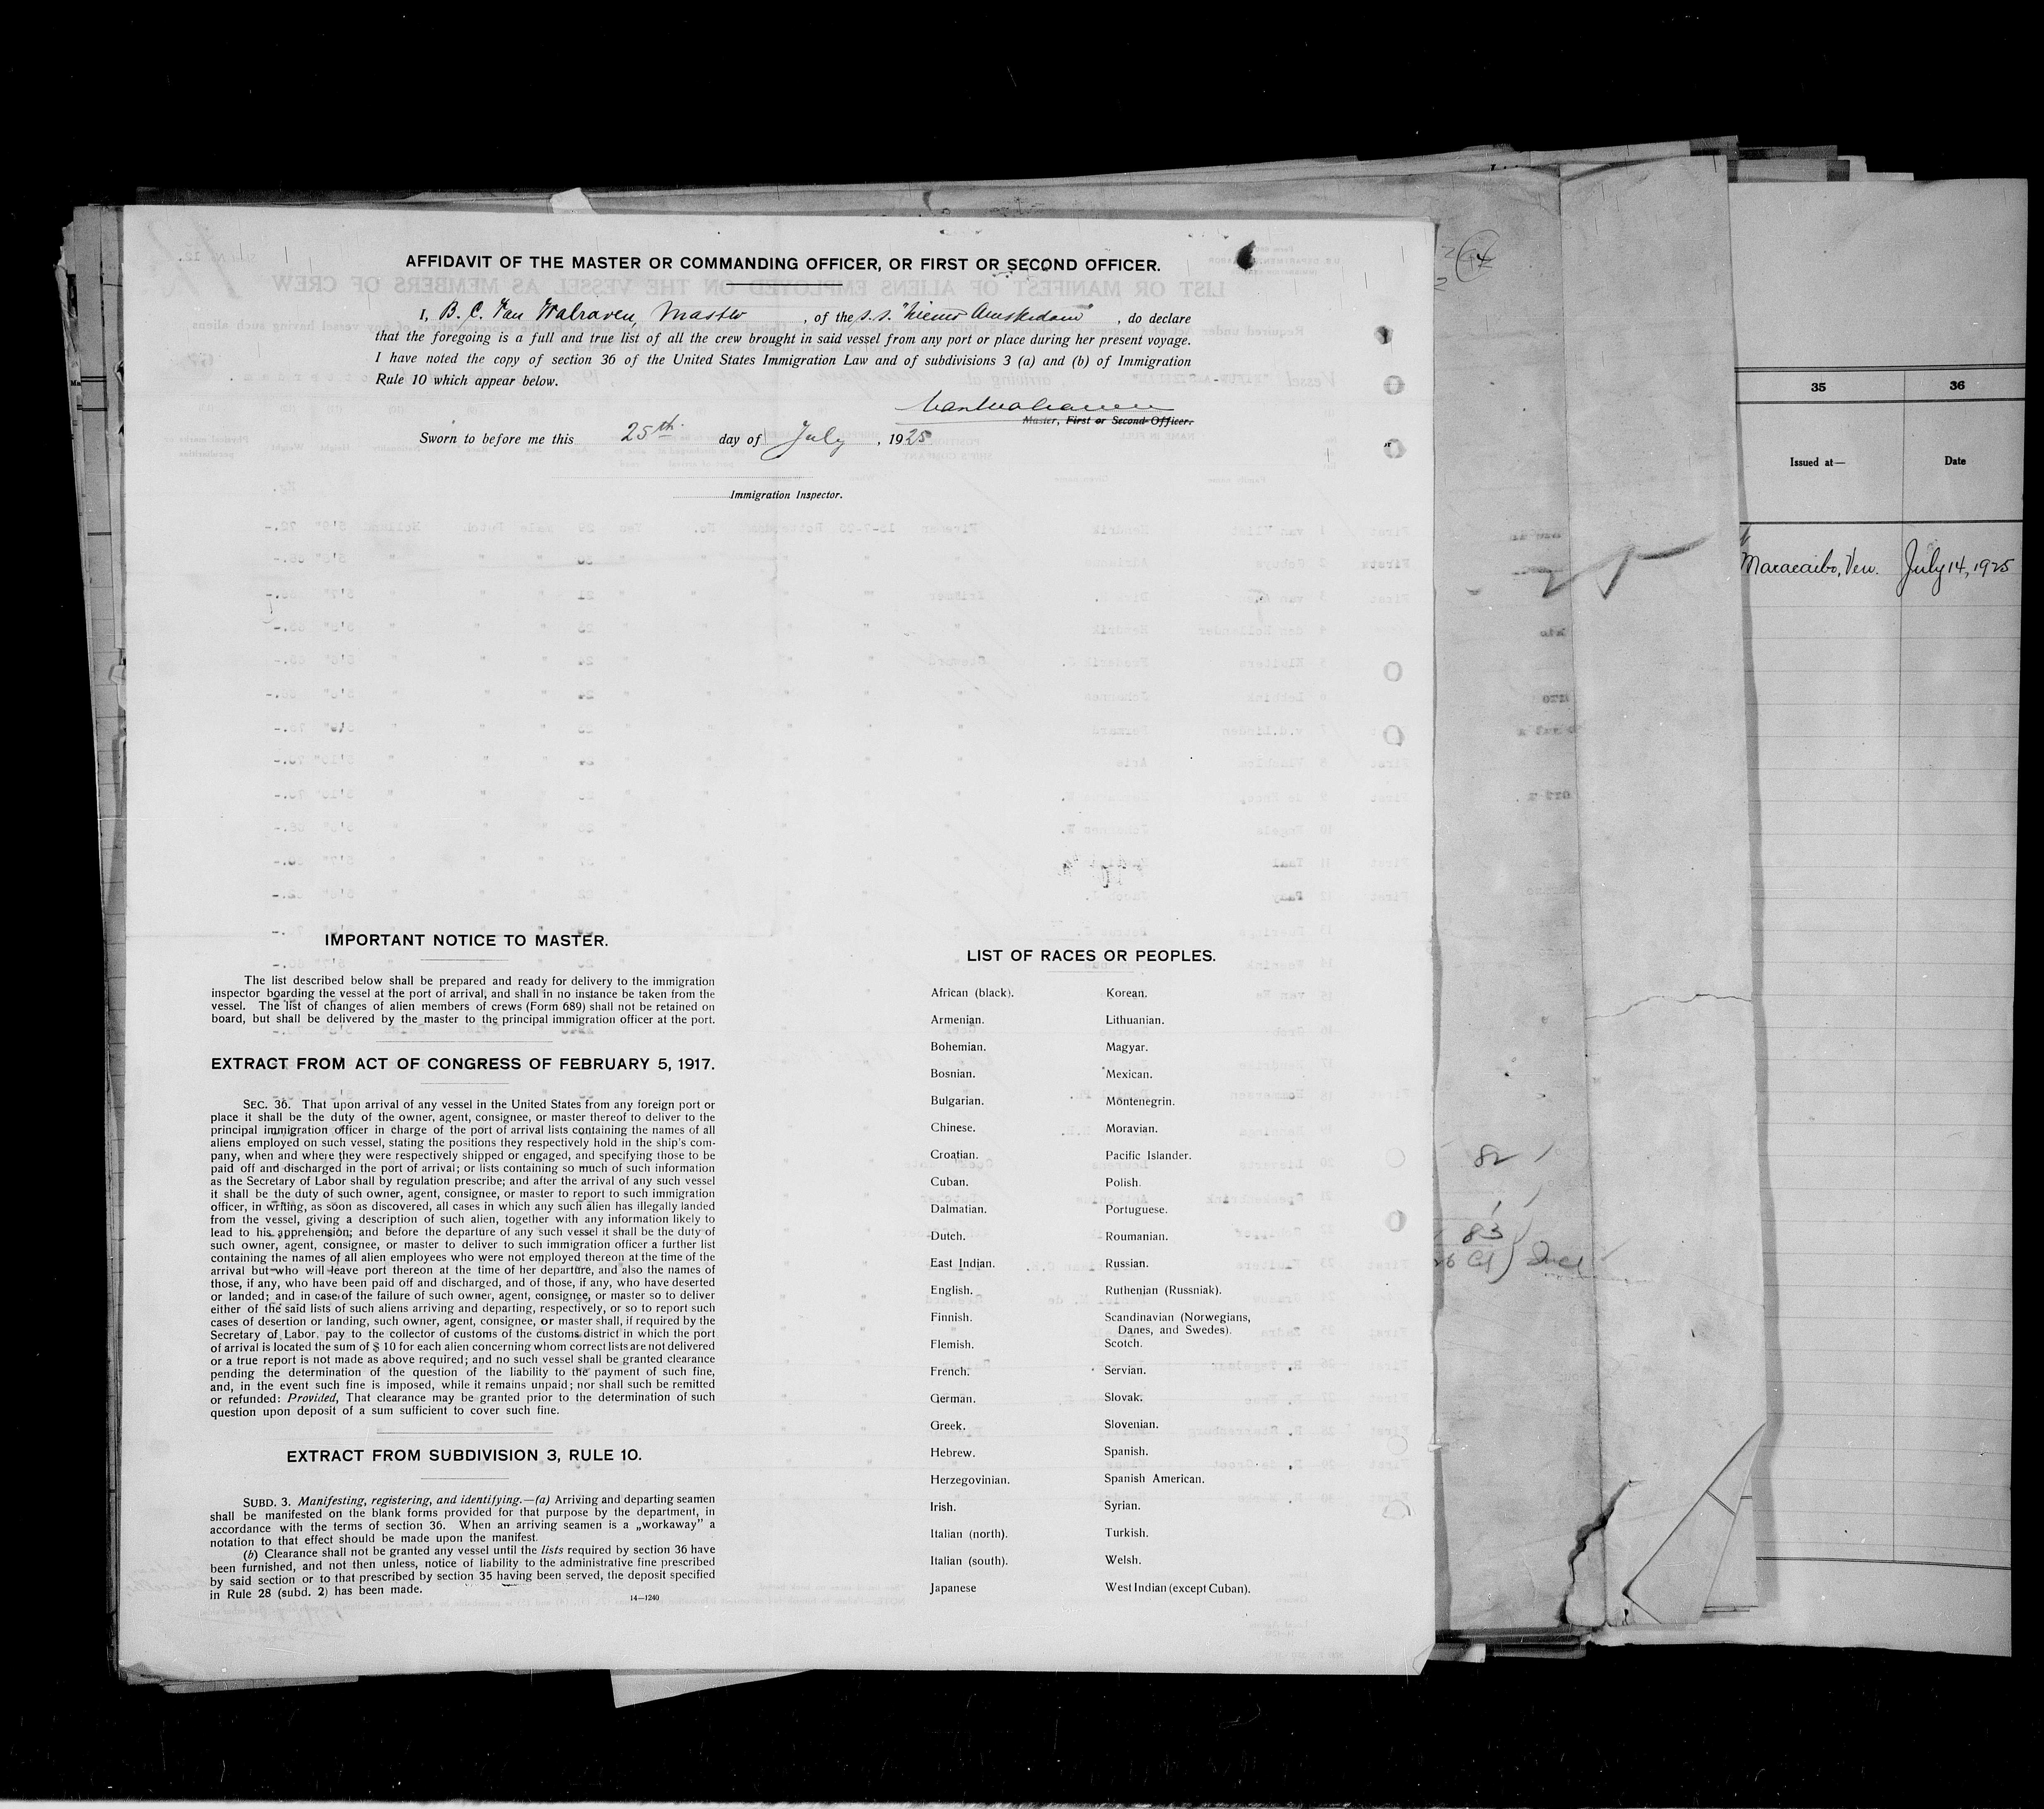 AFFIDAVIT OF THE MASTER OR COMMANDING OFFICER, OR FIRST OR SECOND OFFICER.
I, B. C. Van Walraven, Master, of the s.s. "Nieuw Amsterdam", do declare
that the foregoing is a full and true list of all the crew brought in said vessel from any port or place during her present voyage.
I have noted the copy of section 36 of the United States Immigration Law and of subdivisions 3 (a) and (b) of Immigration
Rule 10 which appear below.
Master, First or Second Officer.
Sworn to before me this 25th day of July, 1925
Immigration Inspector.
IMPORTANT NOTICE TO MASTER.
The list described below shall be prepared and ready for delivery to the immigration
inspector boarding the vessel at the port of arrival, and shall in no instance be taken from the
vessel. The list of changes of alien members of crews (Form 689) shall not be retained on
board, but shall be delivered by the master to the principal immigration officer at the port.
EXTRACT FROM ACT OF CONGRESS OF FEBRUARY 5, 1917.
SEC. 36. That upon arrival of any vessel in the United States from any foreign port or
place it shall be the duty of the owner, agent, consignee, or master thereof to deliver to the
principal immigration officer in charge of the port of arrival lists containing the names of all
aliens employed on such vessel, stating the positions they respectively hold in the ship's com-
pany, when and where they were respectively shipped or engaged, and specifying those to be
paid off and discharged in the port of arrival; or lists containing so much of such information
as the Secretary of Labor shall by regulation prescribe; and after the arrival of any such vessel
it shall be the duty of such owner, agent, consignee, or master to report to such immigration
officer, in writing, as soon as discovered, all cases in which any such alien has illegally landed
from the vessel, giving a description of such alien, together with any information likely to
lead to his apprehension; and before the departure of any such vessel it shall be the duty of
such owner, agent, consignee, or master to deliver to such immigration officer a further list
containing the names of all alien employees who were not employed thereon at the time of the
arrival but who will leave port thereon at the time of her departure, and also the names of
those, if any, who have been paid off and discharged, and of those, if any, who have deserted
or landed; and in case of the failure of such owner, agent, consignee, or master so to deliver
either of the said lists of such aliens arriving and departing, respectively, or so to report such
cases of desertion or landing, such owner, agent, consignee, or master shall, if required by the
Secretary of Labor, pay to the collector of customs of the customs district in which the port
of arrival is located the sum of $ 10 for each alien concerning whom correct lists are not delivered
or a true report is not made as above required; and no such vessel shall be granted clearance
pending the determination of the question of the liability to the payment of such fine,
and, in the event such fine is imposed, while it remains unpaid; nor shall such be remitted
or refunded: Provided, That clearance may be granted prior to the determination of such
question upon deposit of a sum sufficient to cover such fine.
EXTRACT FROM SUBDIVISION 3, RULE 10.
SUBD. 3. Manifesting, registering, and identifying.—(a) Arriving and departing seamen
shall be manifested on the blank forms provided for that purpose by the department, in
accordance with the terms of section 36. When an arriving seamen is a „workaway" a
notation to that effect should be made upon the manifest.
(b) Clearance shall not be granted any vessel until the lists required by section 36 have
been furnished, and not then unless, notice of liability to the administrative fine prescribed
by said section or to that prescribed by section 35 having been served, the deposit specified
in Rule 28 (subd. 2) has been made.
14—1240
LIST OF RACES OR PEOPLES.
African (black).
Armenian.
Bohemian.
Bosnian.
Bulgarian.
Chinese.
Croatian.
Cuban.
Dalmatian.
Dutch.
East Indian.
English.
Finnish.
Flemish.
French.
German.
Greek.
Hebrew.
Herzegovinian.
Irish.
Italian (north).
Italian (south).
Japanese
Korean.
Lithuanian.
Magyar.
Mexican.
Montenegrin.
Moravian.
Pacific Islander.
Polish.
Portuguese.
Roumanian.
Russian.
Ruthenian (Russniak).
Scandinavian (Norwegians,
Danes, and Swedes).
Scotch.
Servian.
Slovak.
Slovenian.
Spanish.
Spanish American.
Syrian.
Turkish.
Welsh.
West Indian (except Cuban).
82
83
35
36
Issued at—
Date
Maracaibo, Ven. July 14, 1925